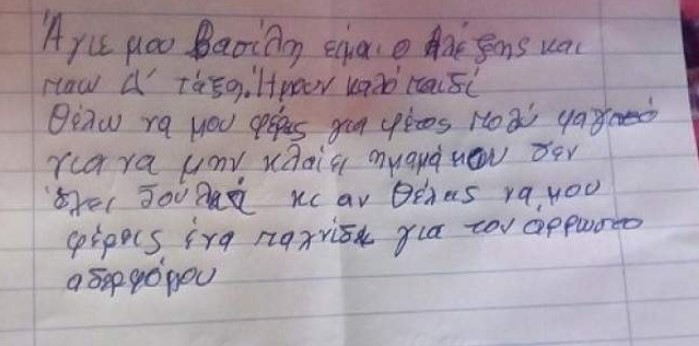 Άγιε μου Βασίλη είμαι ο Αλέξης και
παω Δ' τάξη. Ήμουν καλό παιδί
Θέλω να μου φέρεις για φέτος πολύ φαγητό
για να μην κλαίει η μαμά μου δεν
έχει δουλειά κι αν θέλεις να μου
φέρεις ένα παχνίδι για τον άρρωστο
αδερφόμου